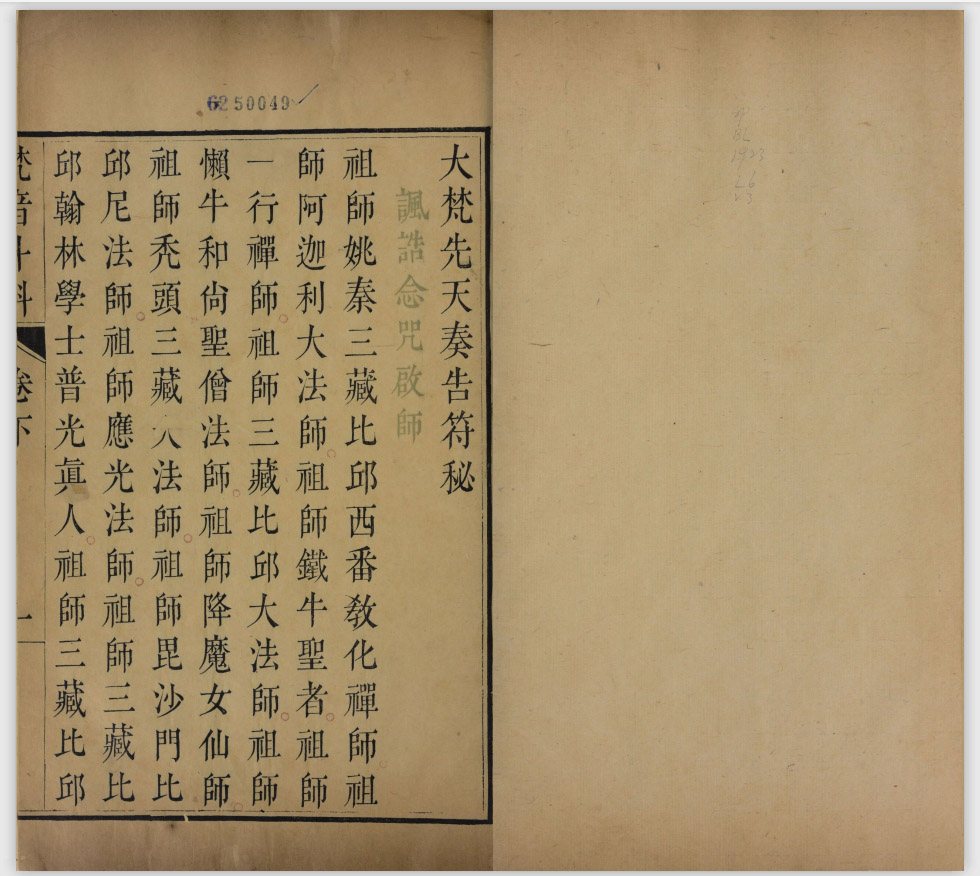 6250049
大梵先天奏告符秘
諷誥念咒啟師
祖師姚秦三藏比邱西番教化禪師祖
師阿迦利大法師祖師鐵牛聖者祖師
一行禪師祖師三藏比邱大法師祖師
懶牛和尙聖僧法師祖師降魔女仙師
祖師禿頭三藏大法師祖師毘沙門比
邱尼法師祖師應光法師祖師三藏比
邱翰林學士普光眞人祖師三藏比邱
梵音斗科
卷下
一
1923